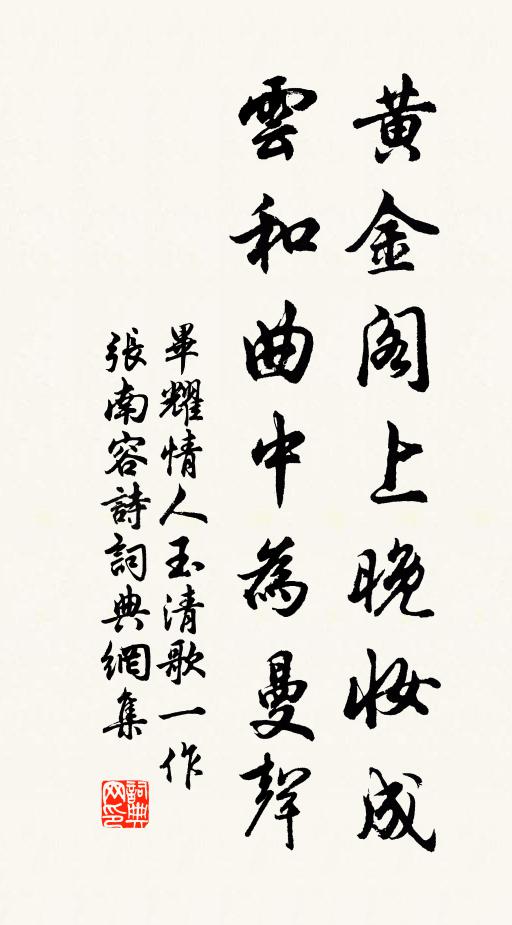 黃金閣上晚妝成
雲和曲中為曼聲
畢耀情人玉清歌一作
張南容詩詞典網集
詞典網印